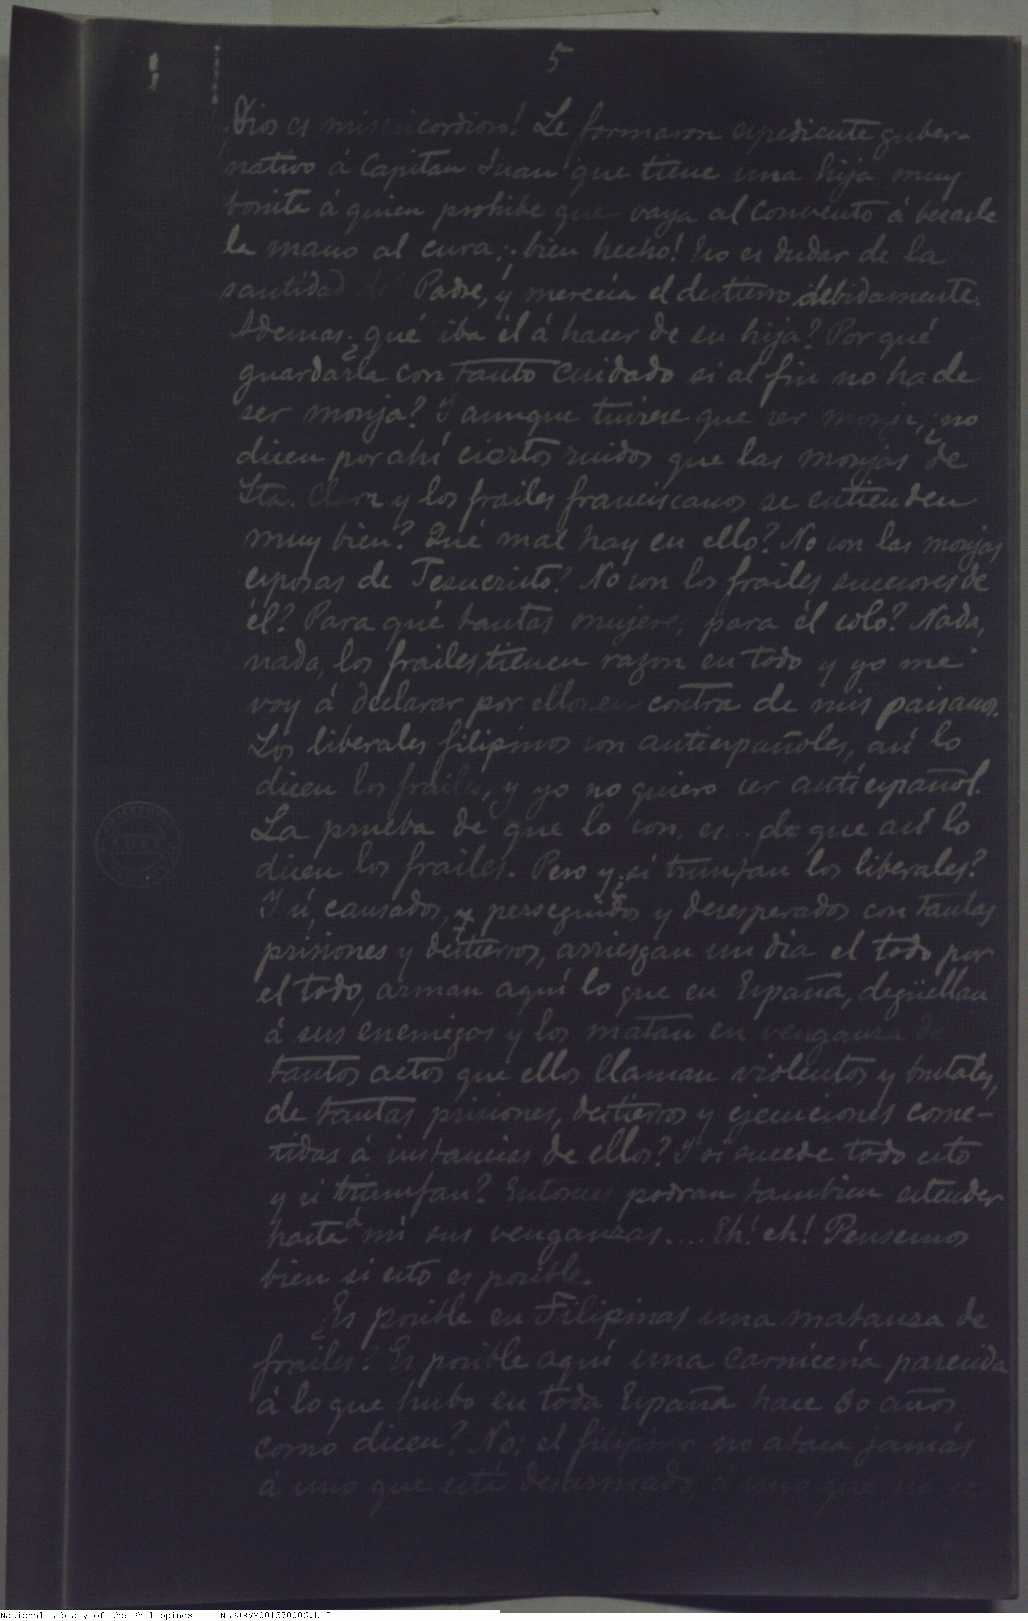 5
Dios es misericordioso! Le formaron espediente guber-
nativo á Capitan Juan que tiene una hija muy
bonita á quien prohibe que vaya al convento á besarle
la mano al cura; bien hecho! Eso es dudar de la
santidad del Padre, y merecía el destierro debidamente.
Ademas ¿qué iba él á hacer de su hija? Por qué
guardarla con tanto cuidado si al fin no ha de
ser monja? Y aunque tuviese que ser monja, ¿no
dicen por ahí ciertos ruidos que las monjas de
Sta. Clara y los frailes franciscanos se entienden
muy bien? Qué mal hay en ello? No son las monjas
esposas de Jesucristo? No son los frailes sucesores de
él? Para qué tantas mujeres para él solo? Nada,
nada, los frailes tienen razon en todo y yo me
voy á declarar por ellos en contra de mis paisanos.
Los liberales filipinos son antiespañoles, así lo
dicen los frailes, y yo no quiero ser antiespañol.
La prueba de que lo son, es... de que así lo
dicen los frailes. Pero y ¿si triunfan los liberales?
Y si, cansados, y perseguidos y desesperados con tantas
prisiones y destierros, arriesgan un dia el todo por
el todo, arman aquí lo que en España, degüellan
á sus enemigos y los matan en venganza de
tantos actos que ellos llaman violentos y brutales,
de tantas prisiones, destierros y ejecuciones come-
tidas á instancias de ellos? Y si sucede todo esto
y si triunfan? Entonces podran tambien estender
hasta á mí sus venganzas.... Eh! eh! Pensemos
bien si esto es posible.
¿Es posible en Filipinas una matanza de
frailes? Es posible aquí una carnicería parecida
á lo que hubo en toda España hace 50 años
como dicen? No; el filipino no ataca jamás
á uno que está desarmado, á uno que no se
National Library of the Philippines